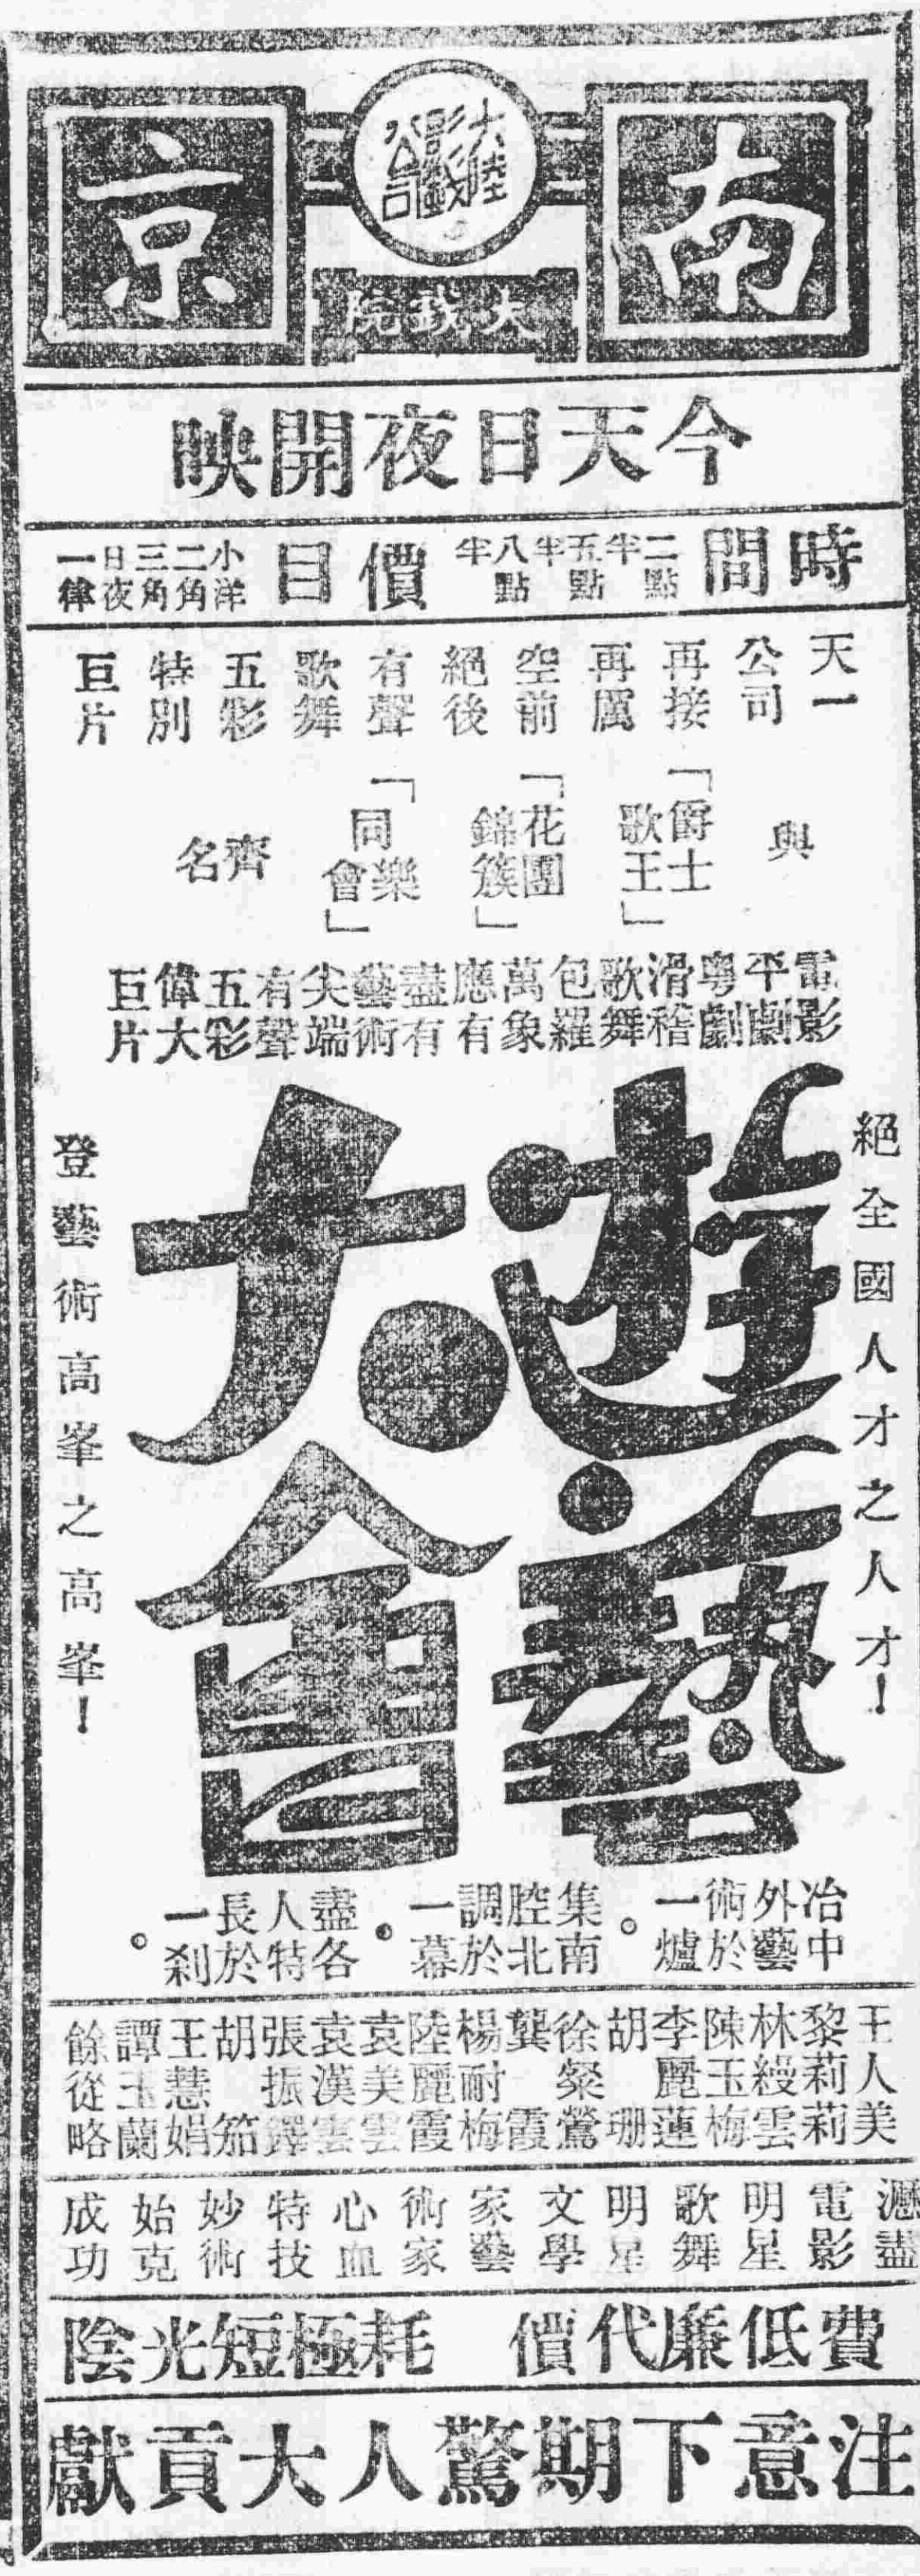 南京
大戲院
今天日夜開映
時間 二點半 五點半 八點半 價目 小洋二角三角日夜一律
天一公司再接再厲空前絕後有聲歌舞五彩特別巨片
與「爵士歌王」「花團錦簇」「同樂會」齊名
電影平劇粵劇滑稽歌舞包羅萬象應有盡有藝術尖端有聲五彩偉大巨片
絕全國人才之人才！
遊藝大會
登藝術高峯之高峯！
冶中外藝術於一爐。集南腔北調於一幕。盡各人特長於一剎。
王人美
黎莉莉
林縵雲
陳玉梅
李麗蓮
胡珊
徐粲鶯
龔霞
楊耐梅
陸麗霞
袁美雲
袁漢雲
張振鐸
胡笳
王慧娟
譚玉蘭
餘從略
瀝盡電影明星歌舞明星文學家藝術家心血特技妙術始克成功
費低廉代價 耗極短光陰
注意下期驚人大貢獻